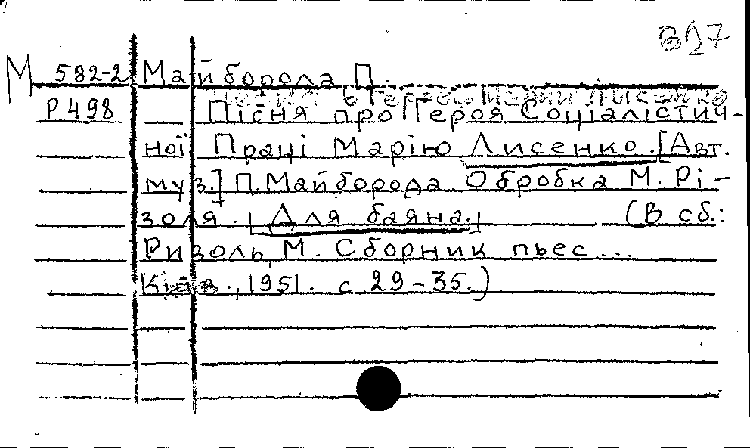 В27
М 582-2 Майборода П.
Р498 Пісня про Героя Соціалістич-
ної Праці Марію Лисенко. [Авт.
муз.] П. Майборода Обробка М. Рі-
золя. Для баяна. (В сб.:
Ризоль, М. Сборник пьес...
Київ., 1951. с 29-35.)